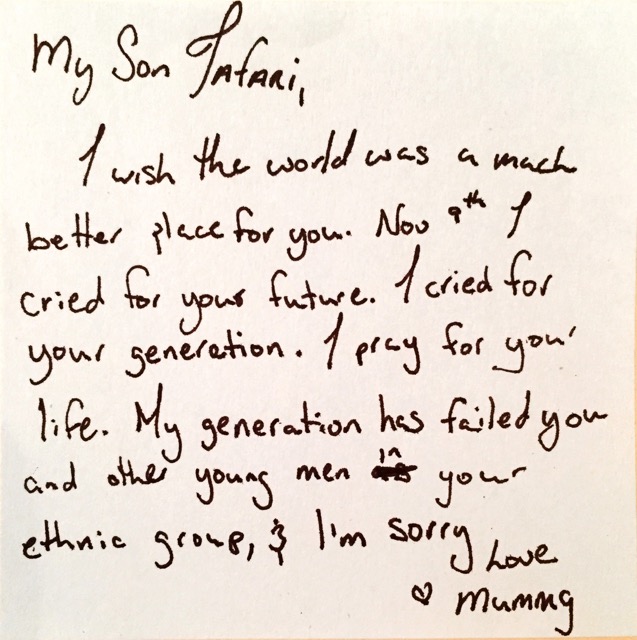 My Son Tafari,
I wish the world was a much
better place for you. Nov 9th I
cried for your future. I cried for
your generation. I pray for your
life. My generation has failed you
and other young men in your
ethnic group, & I'm sorry
Love
♡ Mummy